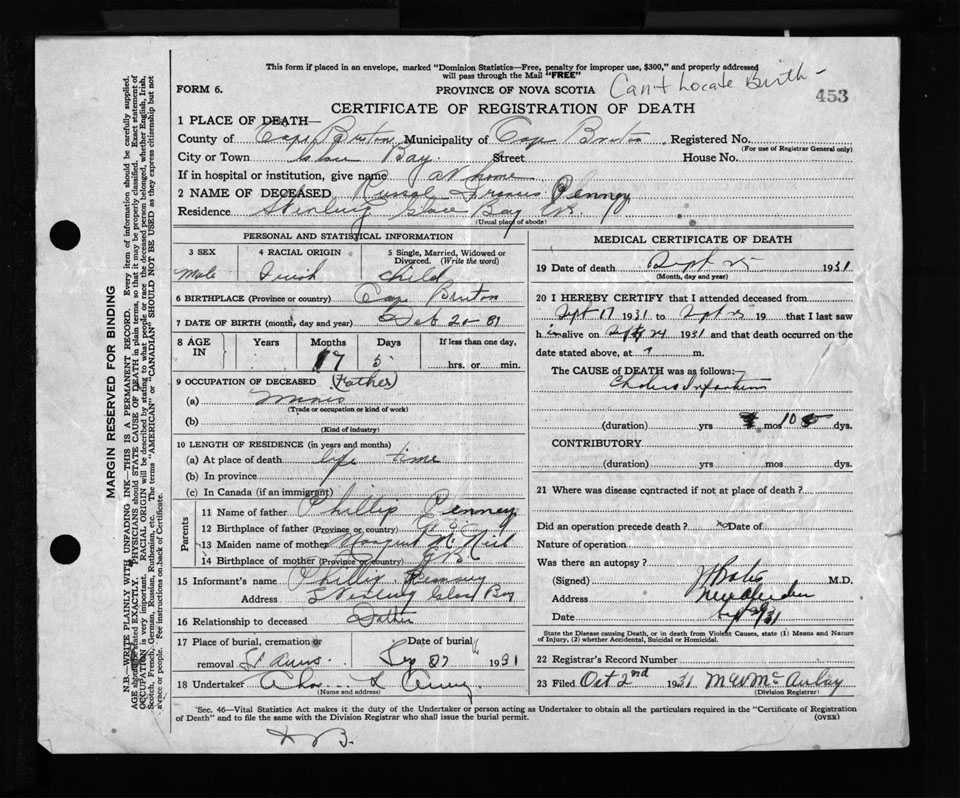 This form if placed in an envelope, marked "Dominion Statistics—Free, penalty for improper use, $300," and properly addressed
will pass through the Mail "FREE"
FORM 6.
PROVINCE OF NOVA SCOTIA
Can't Locate Birth -
453
CERTIFICATE OF REGISTRATION OF DEATH
1 PLACE OF DEATH—
County of Cape Breton Municipality of Cape Breton Registered No.
(For use of Registrar General only)
City or Town Glace Bay. Street House No.
If in hospital or institution, give name at home
2 NAME OF DECEASED Russel Francis Penney
Residence Sterling Glace Bay
(Usual place of abode)
PERSONAL AND STATISTICAL INFORMATION
3 SEX 4 RACIAL ORIGIN 5 Single, Married, Widowed or Divorced. (Write the word)
Male Irish child
6 BIRTHPLACE (Province or country) Cape Breton
7 DATE OF BIRTH (month, day and year) Feb 20
8 AGE IN Years Months Days If less than one day,
7 5 hrs. or min.
9 OCCUPATION OF DECEASED (Father)
(a)
(Trade or occupation or kind of work)
(b)
(Kind of industry)
10 LENGTH OF RESIDENCE (in years and months)
(a) At place of death life time
(b) In province
(c) In Canada (if an immigrant)
Parents
11 Name of father Phillip Penney
12 Birthplace of father (Province or country)
13 Maiden name of mother Margaret McNeil
14 Birthplace of mother (Province or country) C.B.
15 Informant's name Phillip Penney
Address Sterling Glace Bay
16 Relationship to deceased Father
17 Place of burial, cremation or Date of burial
removal St Anns Sep 27 1931
18 Undertaker
(Name and address)
MEDICAL CERTIFICATE OF DEATH
19 Date of death Sept 25 1931
(Month, day and year)
20 I HEREBY CERTIFY that I attended deceased from
Sept 17 1931 to Sept 25 19 that I last saw
him alive on Sept 24 1931 and that death occurred on the
date stated above, at ? m.
The CAUSE of DEATH was as follows:—
Cholera Infantum
(duration) yrs mos 10 dys.
CONTRIBUTORY
(duration) yrs mos dys.
21 Where was disease contracted if not at place of death?
Did an operation precede death? no Date of
Nature of operation
Was there an autopsy?
(Signed) M.D.
Address New Aberdeen
Date Sept 31
State the Disease causing Death, or in death from Violent Causes, state (1) Means and Nature
of Injury, (2) whether Accidental, Suicidal or Homicidal.
22 Registrar's Record Number
23 Filed Oct 2nd 1931 M W McAulay
(Division Registrar)
Sec. 46—Vital Statistics Act makes it the duty of the Undertaker or person acting as Undertaker to obtain all the particulars required in the "Certificate of Registration
of Death" and to file the same with the Division Registrar who shall issue the burial permit.
(OVER)
MARGIN RESERVED FOR BINDING
N.B.—WRITE PLAINLY WITH UNFADING INK—THIS IS A PERMANENT RECORD. Every item of information should be carefully supplied.
AGE should be stated EXACTLY. PHYSICIANS should STATE CAUSE OF DEATH in plain terms, so that it may be properly classified. Exact statement of
OCCUPATION is very important. RACIAL ORIGIN will be described by stating to what people or race the deceased person belonged, whether English, Irish,
Scotch, French, German, Russian, Ruthenian, etc. The terms "AMERICAN" or "CANADIAN" SHOULD NOT BE USED as they express citizenship but not
a race or people. See instructions on back of Certificate.